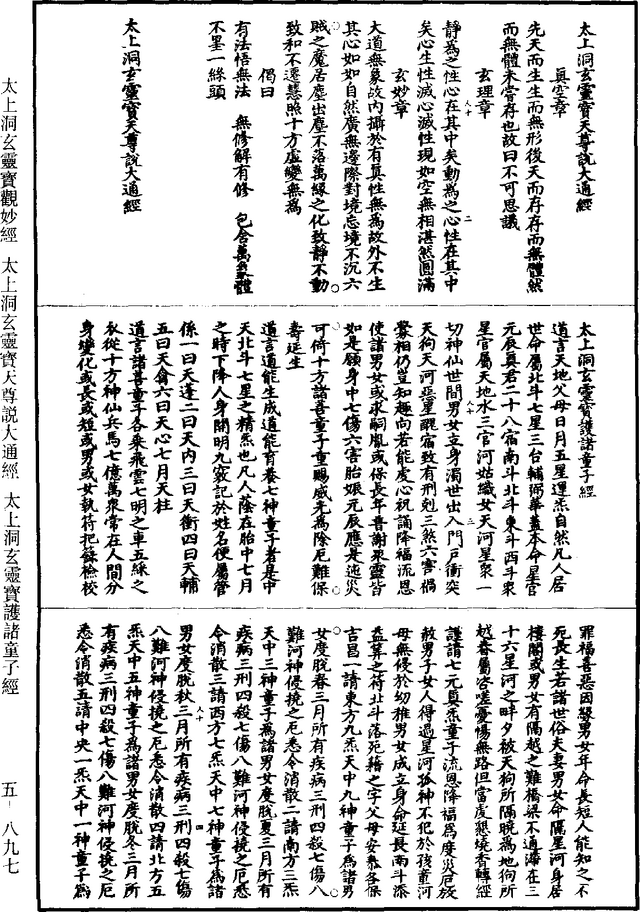 太上洞玄靈寶天尊說大通經
真空章
先天而生生而無形後天而存存而無體然
而無體未嘗存也故曰不可思議
玄理章
靜為之性心在其中矣動為之心性在其中
矣心生性滅心滅性現如空無相湛然圓滿
玄妙章
大道無象故內攝於有真性無為故外不生
其心如如自然廣無邊際對境忘境不沉六
賊之魔居塵出塵不落萬緣之化致靜不動
致和不遷慧照十方虛變無為
偈曰
有法悟無法　無修解有修　包含萬象體
不罣一絲頭
太上洞玄靈寶天尊說大通經
太上洞玄靈寶護諸童子經
道言天地父母日月五星運炁自然凡人居
世命屬北斗七星三台輔弼華蓋本命星官
元辰真君二十八宿南斗北斗東斗西斗眾
星官屬天地水三官河姑織女天河星眾一
切神仙世間男女立身濁世出入門戶衝突
天狗天河惡星醜宿致有刑剋三煞六害禍
纍相仍豈知趣向若能虔心祝誦降福流恩
使諸男女或求嗣胤或保長年普謝眾靈皆
如是願身中七傷六害胎娠元辰應是迍災
可倚十方諸善童子重賜威光為除厄難保
壽延生
道言道能生成道能育養七神童子者是中
天北斗七星之精炁也凡人蔭在胎中七月
之時下降人身開明九竅記於姓名便屬管
係一曰天逢二曰天內三曰天衝四曰天輔
五曰天禽六曰天心七月天柱
道言諸善童子各乘飛雲七明之車五綵之
衣從十方神仙兵馬七億萬眾常在人間分
身變化或長或短或男或女執符把籙檢校
罪福善惡因緣男女年命長短人能知之不
死長生若諸世俗夫妻男女命隔星河身居
樓閣或男女有隔越之難橋梁不通滯在三
十六星河之畔夕被天狗所隔晚為地狗所
越眷屬咨嗟憂惱無路但當虔懇燒香轉經
護請七元真炁童子流恩降福為度災厄救
赦男子女人得過星河孤神不犯於孩童河
母無侵於幼稚男女成立身命延長南斗添
益筭之符北斗落死籍之字父母安泰各保
吉昌一請東方九炁天中九神童子為諸男
女度脫春三月所有疾病三刑四殺七傷八
難河神侵撓之厄悉令消散二請南方三炁
天中三神童子為諸男女度脫夏三月所有
疾病三刑四殺七傷八難河神侵撓之厄悉
令消散三請西方七炁天中七神童子為諸
男女度脫秋三月所有疾病三刑四殺七傷
八難河神侵撓之厄悉令消散四請北方五
炁天中五神童子為諸男女度脫冬三月所
有疾病三刑四殺七傷八難河神侵撓之厄
悉令消散五請中央一炁天中一神童子為
太上洞玄靈寶觀妙經　太上洞玄靈寶天尊說大通經　太上洞玄靈寶護諸童子經
五－八九七